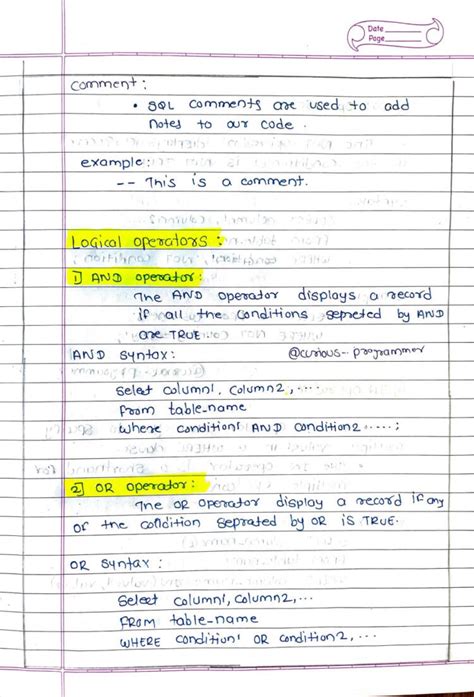 Date
Page
Comment:
• SQL comments are used to add
notes to our code.
example:
-- This is a comment.
Logical operators:
1] AND operator:
The AND operator displays a record
if all the conditions sepreted by AND
are TRUE.
AND Syntax: @curious-_programmer
Select column1, column2, ....
From table_name
Where condition1 AND condition2 .....;
2] OR operator:
The OR operator display a record if any
of the condition seprated by OR is TRUE.
OR Syntax:
Select column1, column2, ...
FROM table_name
WHERE condition1 OR condition2, ...